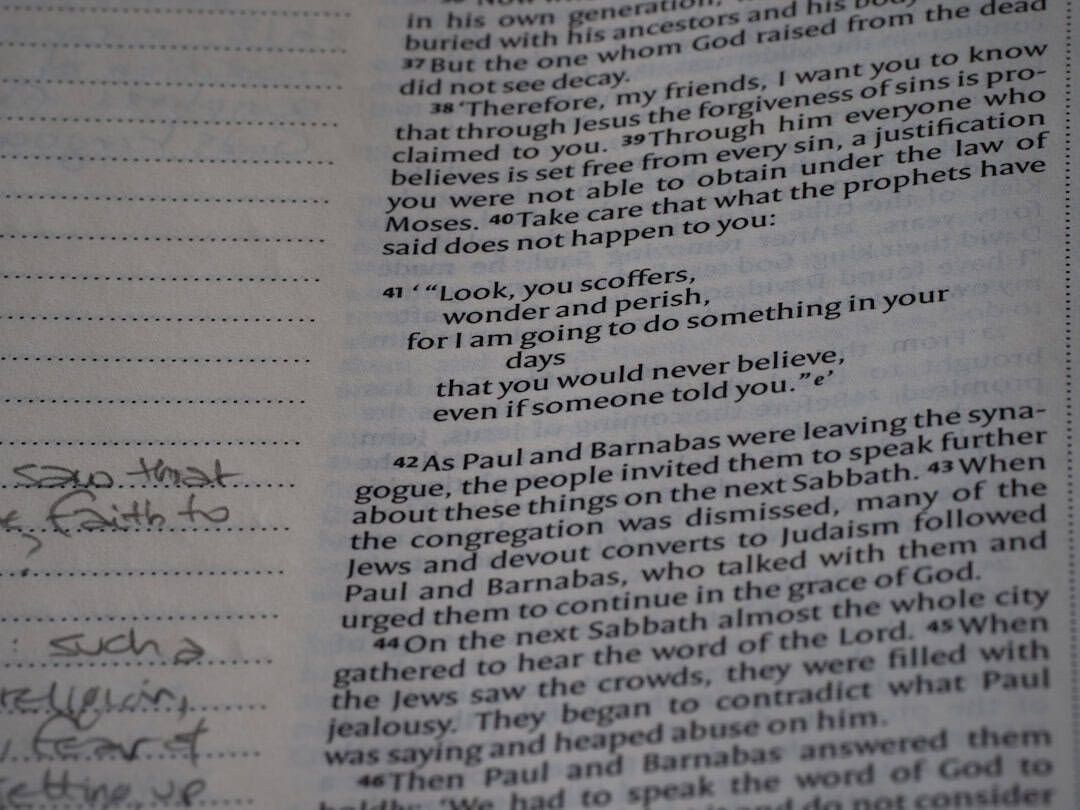 saw that
faith to
?
: such a
religion,
fear &
setting up
36 Now w
in his own generation,
buried with his ancestors and his body
37 But the one whom God raised from the dead
did not see decay.
38 ‘Therefore, my friends, I want you to know
that through Jesus the forgiveness of sins is pro-
claimed to you. 39 Through him everyone who
believes is set free from every sin, a justification
you were not able to obtain under the law of
Moses. 40 Take care that what the prophets have
said does not happen to you:
41 ‘ “Look, you scoffers,
wonder and perish,
for I am going to do something in your
days
that you would never believe,
even if someone told you.” e’
42 As Paul and Barnabas were leaving the syna-
gogue, the people invited them to speak further
about these things on the next Sabbath. 43 When
the congregation was dismissed, many of the
Jews and devout converts to Judaism followed
Paul and Barnabas, who talked with them and
urged them to continue in the grace of God.
44 On the next Sabbath almost the whole city
gathered to hear the word of the Lord. 45 When
the Jews saw the crowds, they were filled with
jealousy. They began to contradict what Paul
was saying and heaped abuse on him.
46 Then Paul and Barnabas answered them
boldly: ‘We had to speak the word of God to
and do not consider